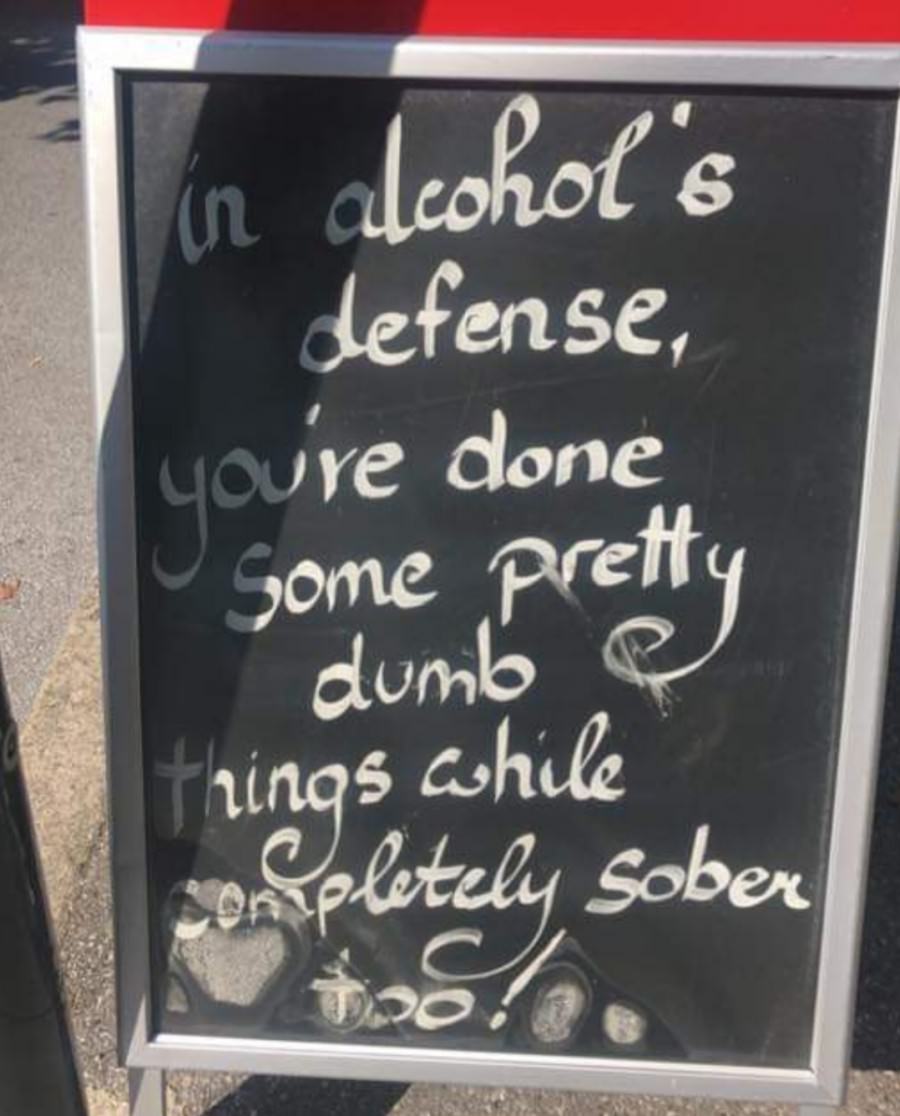 in alcohol's
defense,
you're done
some pretty
dumb
things while
completely sober
too!